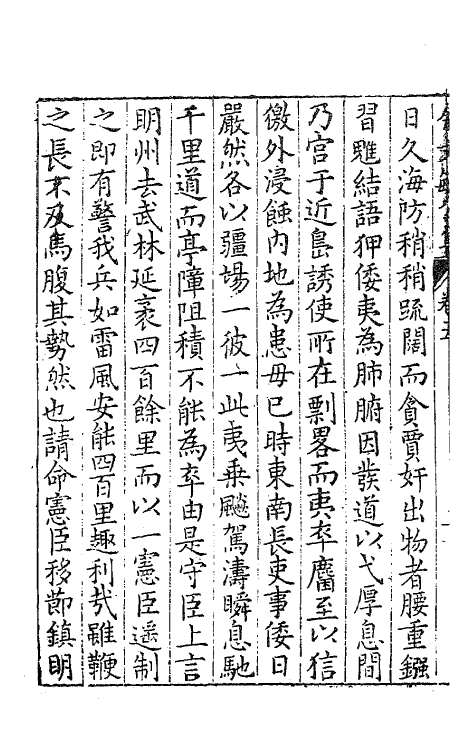 日久海防稍稍疏闊而貪賈奸出物者腰重鏹
習雕結語狎倭夷為肺腑因發道以弋厚息間
乃宮于近島誘使所在剽畧而夷卒麕至以狺
徼外浸蝕內地為患毋已時東南長吏事倭日
嚴然各以疆場一彼一此夷乗飈駕濤瞬息馳
千里道而亭障阻積不能為卒由是守臣上言
明州去武林延袤四百餘里而以一憲臣遥制
之即有警我兵如雷風安能四百里趣利㢤雖鞭
之長不及馬腹其勢然也請命憲臣移節鎮明
卷五